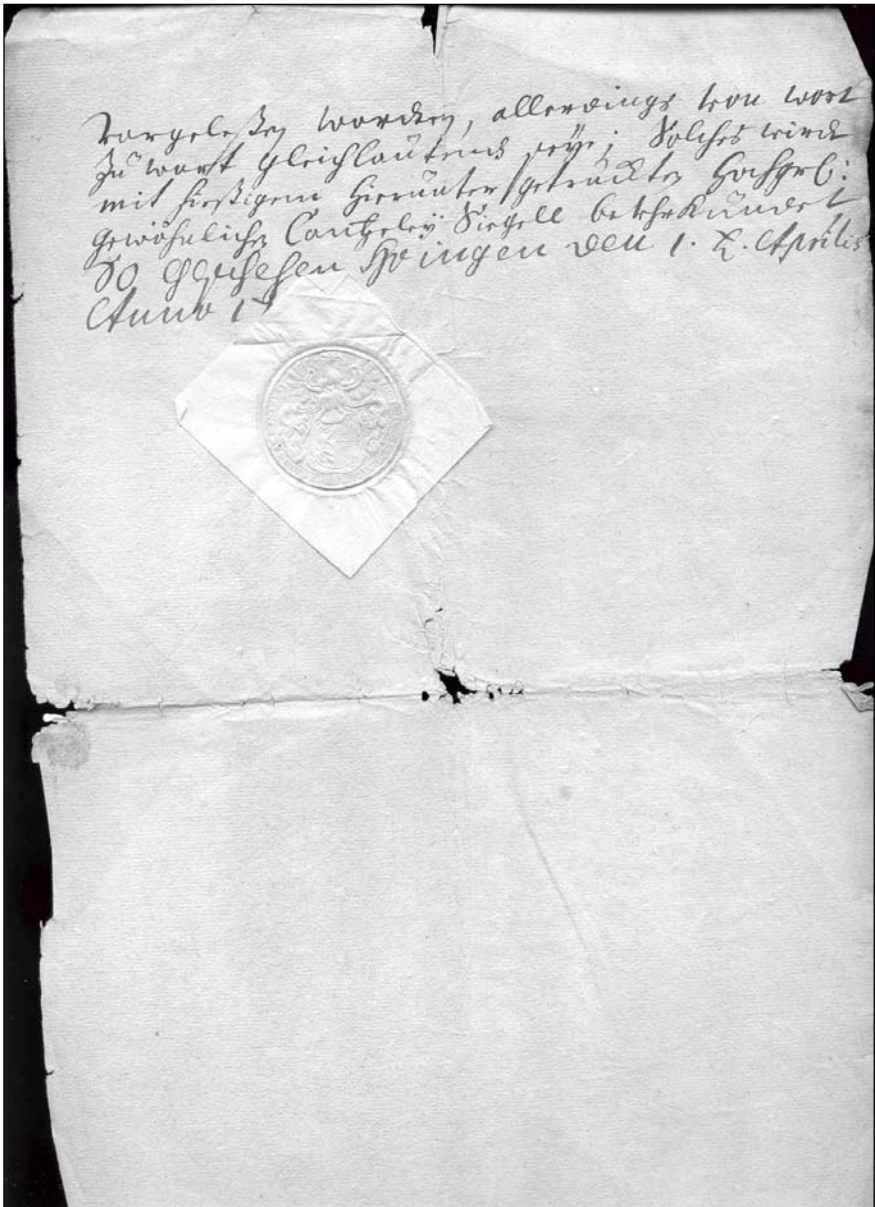 vorgeleßen worden, allerdings von wort
zu wort gleichlautend seye; Solches wird
mit hießigem hierunter getruckten Hochgrl:
gewöhnlichen Cantzeley Siegell beuhrkundet
So geschehen den 1. Aprilis
Anno 1